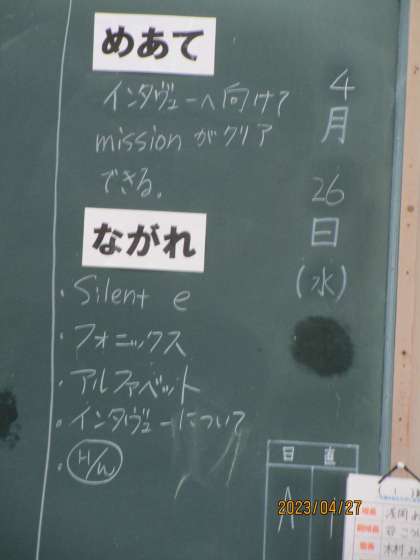 めあて
インタヴューへ向けて
missionがクリア
できる。
ながれ
・Silent e
・フォニックス
・アルファベット
・インタヴューについて
・H/W
4月26日(水)
日直
2023/04/27